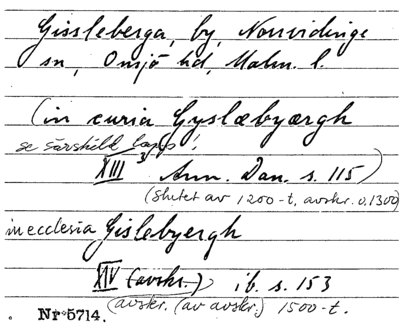 Gissleberga, by, Norrvidinge
sn, Onsjö hd, Malm. l.
(in curia Gyslæbyærgh
se särskild lapp!
XIII 3 Ann. Dan. s. 115)
(slutet av 1200-t, avskr. o. 1300)
in ecclesia Gislebyergh
XIV (avskr.) ib. s. 153
(avskr. (av avskr.) 1500-t.
Nr 5714.